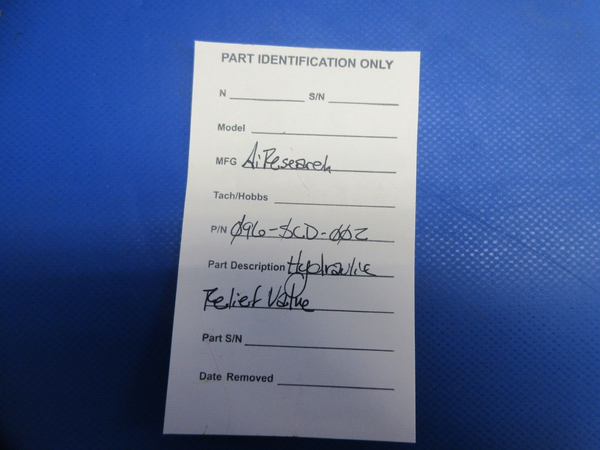 PART IDENTIFICATION ONLY
N S/N
Model
MFG AiResearch
Tach/Hobbs
P/N 096-SCD-002
Part Description Hydraulic
Relief Valve
Part S/N
Date Removed